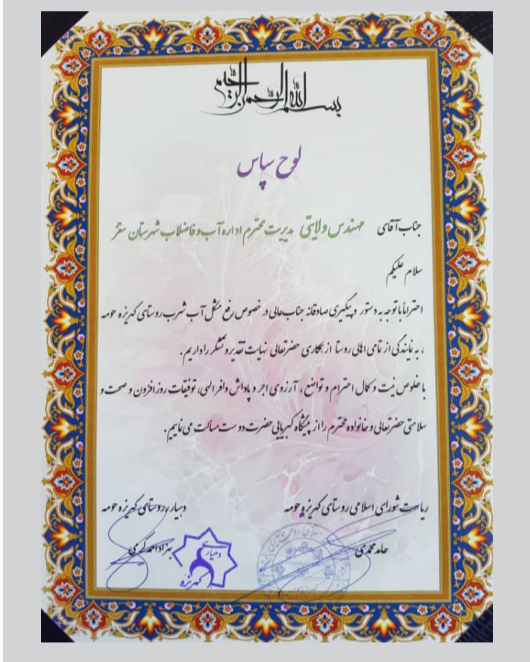 بسم الله الرحمن الرحیم
لوح سپاس
جناب آقای مهندس ولایتی مدیریت محترم اداره آب و فاضلاب شهرستان سقز
سلام علیکم
احتراماً با توجه به دستور و پیگیری صادقانه جنابعالی در خصوص رفع مشکل آب شرب روستای کهریزه حومه
، به نمایندگی از تمامی اهالی روستا از همکاری حضرتعالی نهایت تقدیر و تشکر را داریم .
با خلوص نیت و کمال احترام و تواضع ، آرزوی اجر و پاداش وافر الهی، توفیقات روزافزون و صحت و
سلامتی حضرتعالی و خانواده محترم را از پیشگاه کبریایی حضرت دوست مسالت می نماییم .
ریاست شورای اسلامی روستای کهریزه حومه
دهیار روستای کهریزه حومه
حامد محمدی
دهیاری
کهریزه